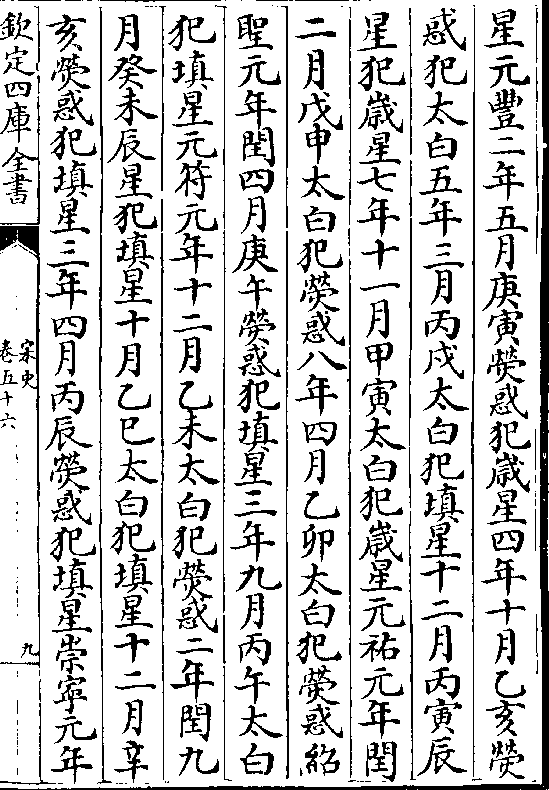 星元豐二年五月庚寅熒惑犯歲星四年十月乙亥熒
惑犯太白五年三月丙戍太白犯填星十二月丙寅辰
星犯歲星七年十一月甲寅太白犯歲星元祐元年閏
二月戊申太白犯熒惑八年四月乙卯太白犯熒惑紹
聖元年閏四月庚午熒惑犯填星三年九月丙午太白
犯填星元符元年十二月乙未太白犯熒惑二年閏九
月癸未辰星犯填星十月乙巳太白犯填星十二月辛
亥熒惑犯填星三年四月丙辰熒惑犯填星崇寜元年
欽定四庫全書
宋史
卷五十六
九